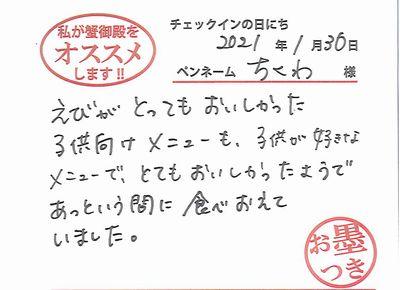 私が蟹御殿を
オススメ
します!!
チェックインの日にち
2021年1月30日
ペンネーム ちくわ 様
えびが とっても おいしかった
子供向け メニューも、子供が 好きな
メニューで、とても おいしかったようで
あっという間に 食べおえて
いました。
お墨
つき